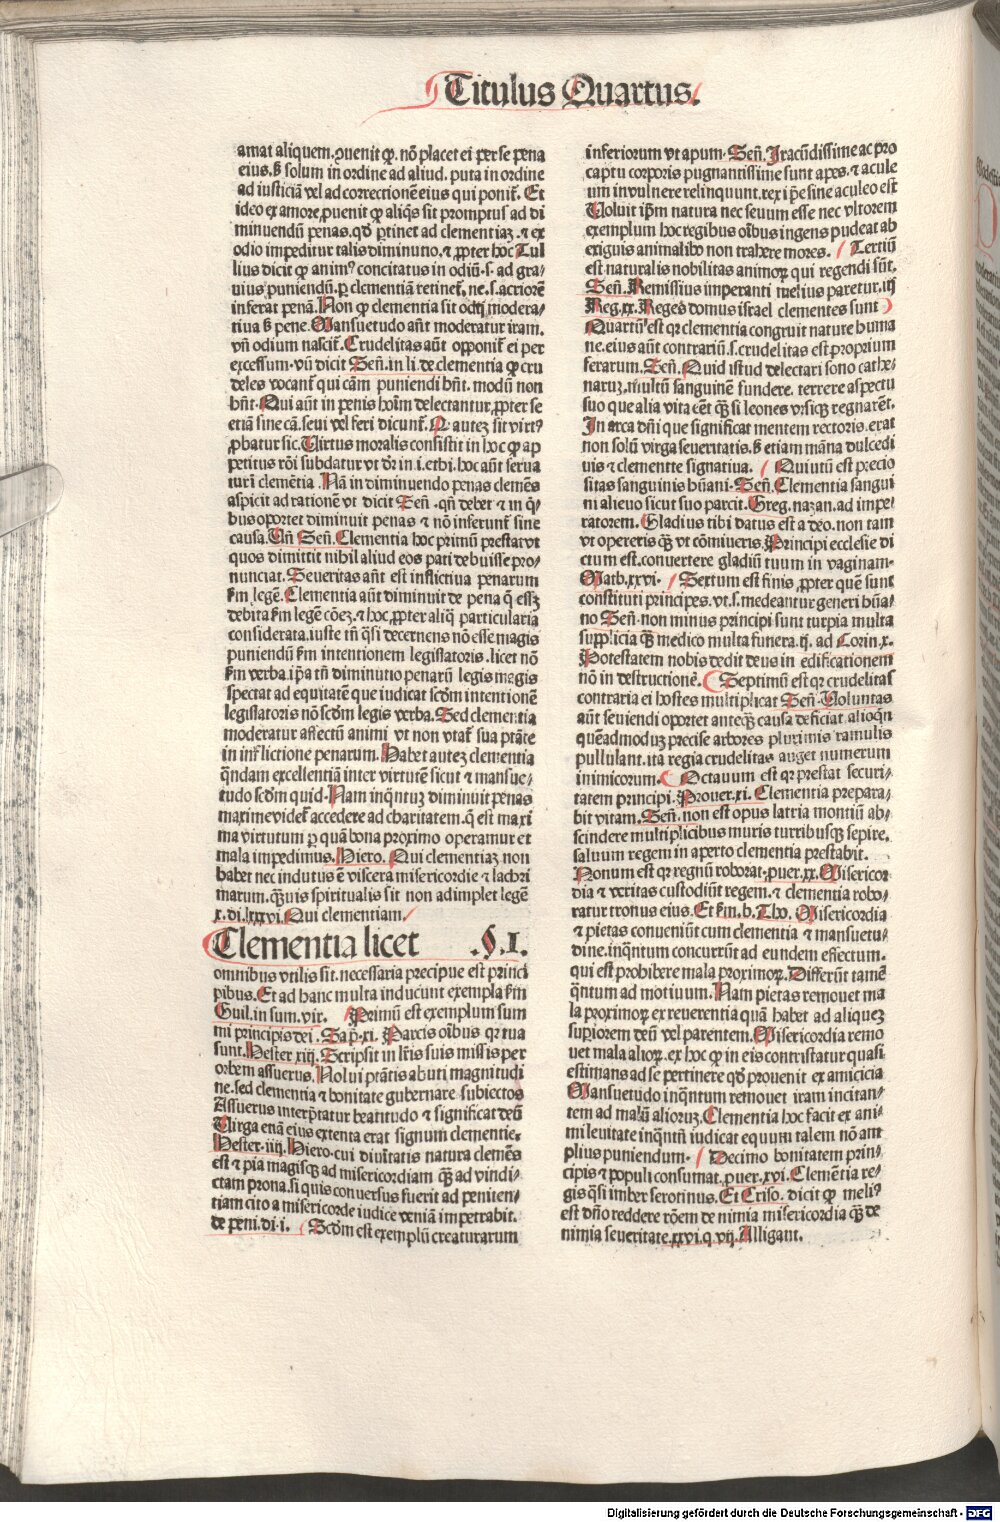 Titulus Quartus.
amat aliquem. ꝓuenit qꝫ. nō placet ei per se pena
eius. sꝫ solum in ordine ad aliud. puta in ordine
ad iusticiā vel ad correctionē eius qui poniť. Et
ideo ex amore ꝓuenit qꝫ aliq̄s sit promptus ad di
minuendū penas. qd̄ ꝑtinet ad clementiaꝫ. ⁊ ex
odio impeditur talis diminutio. ⁊ ꝓpter hoc Tul
lius dicit qꝫ animꝰ concitatus in odiū .s. ad gra/
uius puniendū. ꝑ clementiā retineť. ne .s. acriorē
inferat penā. Non qꝫ clementia sit odij modera/
tiua sꝫ pene. Mansuetudo aūt moderatur iram.
vn̄ odium nasciť. Crudelitas aūt opponiť ei per
excessum. vn̄ dicit Sen̄. in li. de clementia qꝫ cru
deles vocant̄ qui cām puniendi hn̄t. modū non
hn̄t. Qui aūt in penis hoīm delectantur, ꝓpter se
etiā sine cā. seui vel feri dicunť. Q autez sit virtꝰ
ꝓbatur sic. Uirtus moralis consistit in hoc qꝫ ap
petitus rōi subdatur vt dr̄ in .i. ethi. hoc aūt serua
tur ī clemētia. Nā in diminuendo penas clemēs
aspicit ad rationē vt dicit Sen̄. qn̄ debet ⁊ in q̄/
bus oportet diminuit penas ⁊ nō inferunt̄ sine
causa. Un̄ Sen̄. Clementia hoc primū prestat vt
quos dimittit nihil aliud eos pati debuisse pro/
nunciat. Seueritas aūt est inflictiua penarum
ẜm legē. Clementia aūt diminuit de pena q̄ essꝫ
debita ẜm legē cōeꝫ. ⁊ hoc ꝓpter aliq̄ particularia
considerata. iuste tn̄ q̄si decernens nō esse magis
puniendū ẜm intentionem legislatoris. licet nō
ẜm verba. ip̄a tn̄ diminutio penarū legis magis
spectat ad equitatē que iudicat scdm intentionē
legislatoris nō scdm legis verba. Sed clementia
moderatur affectū animi vt non vtať sua ptāte
in inflictione penarum. Habet autez clementia
q̄ndam excellentiā inter virtutē sicut ⁊ mansue/
tudo scdm quid. Nam inq̄ntuꝫ diminuit penas
maxime videť accedere ad charitatem. q̄ est maxi
ma virtutum ꝑ quā bona proximo operamur et
mala impedimus. Hiero. Qui clementiaꝫ non
habet nec indutus ē viscera misericordie ⁊ lachri
marum. q̄uis spiritualis sit non adimplet legē
x. di. lxxxvi. Qui clementiam.
Clementia licet .§.I.
omnibus vtilis sit. necessaria precipue est princi
pibus. Et ad hanc multa inducunt exempla ẜm
Guil. in sum. vir. Primū est exemplum sum
mi principis dei. Sap̄. xi. Parcis oībus qꝛ tua
sunt. Hester xiij. Scripsit in lr̄is suis missis per
orbem assuerus. Nolui ptātis abuti magnitudi
ne. sed clementia ⁊ bonitate gubernare subiectos
Assuerus interp̄tatur beatitudo ⁊ significat deū
Uirga enā eius extenta erat signum clementie.
Hester .iiij. Hiero. cui diuītatis natura clemēs
est ⁊ pia magisqꝫ ad misericordiam q̄ꝫ ad vindi/
ctam prona. si quis conuersus fuerit ad peniten/
tiam cito a misericorde iudice veniā impetrabit.
de peni. di. i. Scdm est exemplū creaturarum
inferiorum vt apum. Sen̄. Iracūdissime ac pro
captu corporis pugnantissime sunt apes. ⁊ acule
um in vulnere relinquunt. rex ip̄e sine aculeo est
Uoluit ip̄m natura nec seuum esse nec vltorem
exemplum hoc regibus oībus ingens pudeat ab
exiguis animalibꝰ non trahere mores. Tertiū
est naturalis nobilitas animoꝝ qui regendi sūt.
Sen̄. Remissius imperanti melius paretur. iij
Reg. xx. Reges domus israel clementes sunt
Quartū est qꝛ clementia congruit nature huma
ne. eius aūt contrariū .s. crudelitas est proprium
ferarum. Sen̄. Quid istud delectari sono cathe/
naruꝫ. multū sanguinē fundere. terrere aspectu
suo que alia vita eēt q̄ꝫ si leones vrsiqꝫ regnarēt.
In arca dn̄i que significat mentem rectoris. erat
non solū virga seueritatis. sꝫ etiam māna dulcedi
nis ⁊ clemente signatiua. Quintū est precio
sitas sanguinis hūani. Sen̄. Clementia sangui
ni alieno sicut suo parcit. Greg. nazan. ad impe/
ratorem. Gladius tibi datus est a deo. non tam
vt opereris q̄ꝫ vt cōmineris. Principi ecclesie di
ctum est. conuertere gladiū tuum in vaginam.
Math. xxvi. Sextum est finis, ꝓpter quē sunt
constituti principes. vt .s. medeantur generi hūa/
no Sen̄. non minus principi sunt turpia multa
supplicia q̄ꝫ medico multa funera. ij. ad Corin. x.
Potestatem nobis dedit deus in edificationem
nō in destructionē. Septimū est qꝛ crudelitas
contraria ei hostes multiplicat Sen̄. Uoluntas
aūt seuiendi oportet anteqꝫ causa deficiat. alioq̄n
quēadmoduꝫ precise arbores plurimis ramulis
pullulant. ita regia crudelitas auget numerum
inimicorum. Octauum est qꝛ prestat securi/
tatem principi. Prouer. xi. Clementia prepara/
bit vitam. Sen̄. non est opus latria montiū ab/
scindere multiplicibus muris turribusqꝫ sepire.
saluum regem in aperto clementia prestabit.
Nonum est qꝛ regnū roborat. ꝓuer. xx. Misericor
dia ⁊ veritas custodiūt regem. ⁊ clementia robo/
ratur tronus eius. Et ẜm. b. Tho. Misericordia
⁊ pietas conueniūt cum clementia ⁊ mansuetu/
dine. inq̄ntum concurrūt ad eundem effectum.
qui est prohibere mala proximoꝝ. Differūt tamē
q̄ntum ad motiuum. Nam pietas remouet ma
la proximoꝝ ex reuerentia quā habet ad aliquez
suꝑiorem deū vel parentem. Misericordia remo
uet mala alioꝝ. ex hoc qꝫ in eis contristatur quasi
estimans ad se pertinere qd̄ prouenit ex amicicia
Mansuetudo inq̄ntum remouet iram incitan/
tem ad malū alioruꝫ. Clementia hoc facit ex ani/
mi leuitate inq̄ntū iudicat equum talem nō am
plius puniendum. Decimo bonitatem prin/
cipis ⁊ populi consumat. ꝓuer. xvi. Clemētia re/
gis q̄si imber serotinus. Et Criso. dicit qꝫ meliꝰ
est dn̄o reddere rōem de nimia misericordia q̄ꝫ de
nimia seueritate. xxvi. q. vij. Alligant.
Digitalisierung gefördert durch die Deutsche Forschungsgemeinschaft - DFG